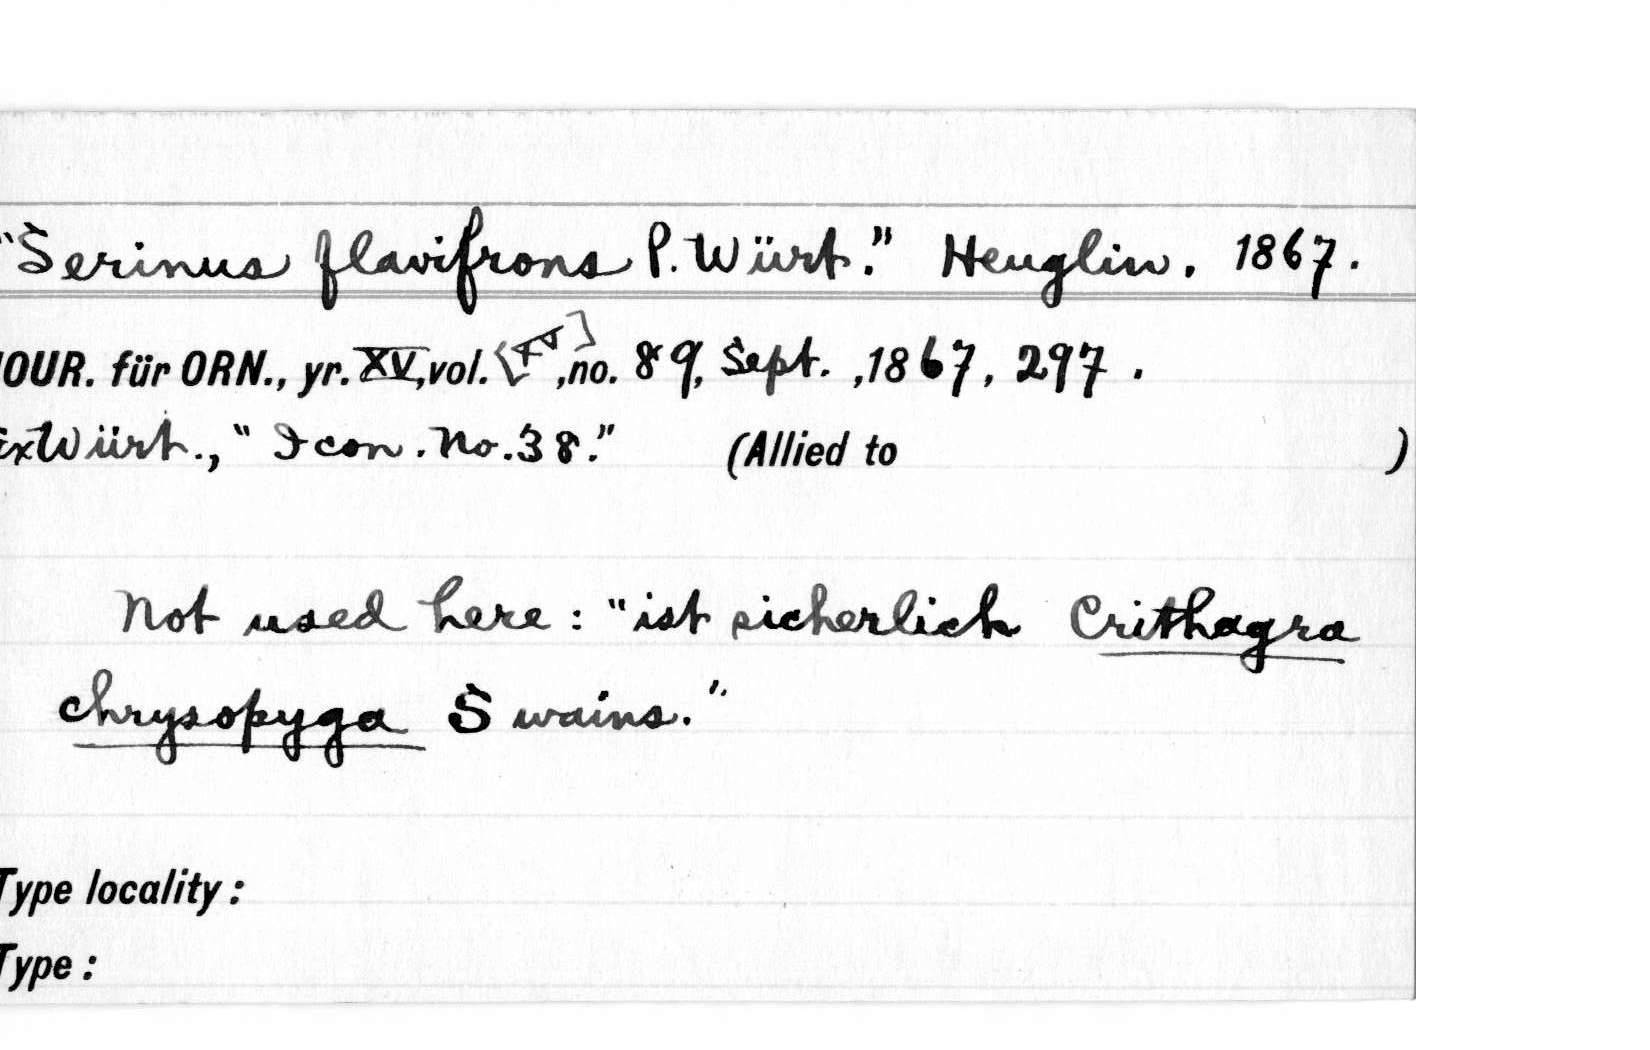 "Serinus flavifrons P. Würt." Heuglin. 1867.
JOUR. für ORN., yr. XV, vol. [XV], no. 89, Sept., 1867, 297.
Ex Würt., "Icon. No. 38." (Allied to )
Not used here: "ist sicherlich Crithagra
chrysopyga Swains."
Type locality:
Type: